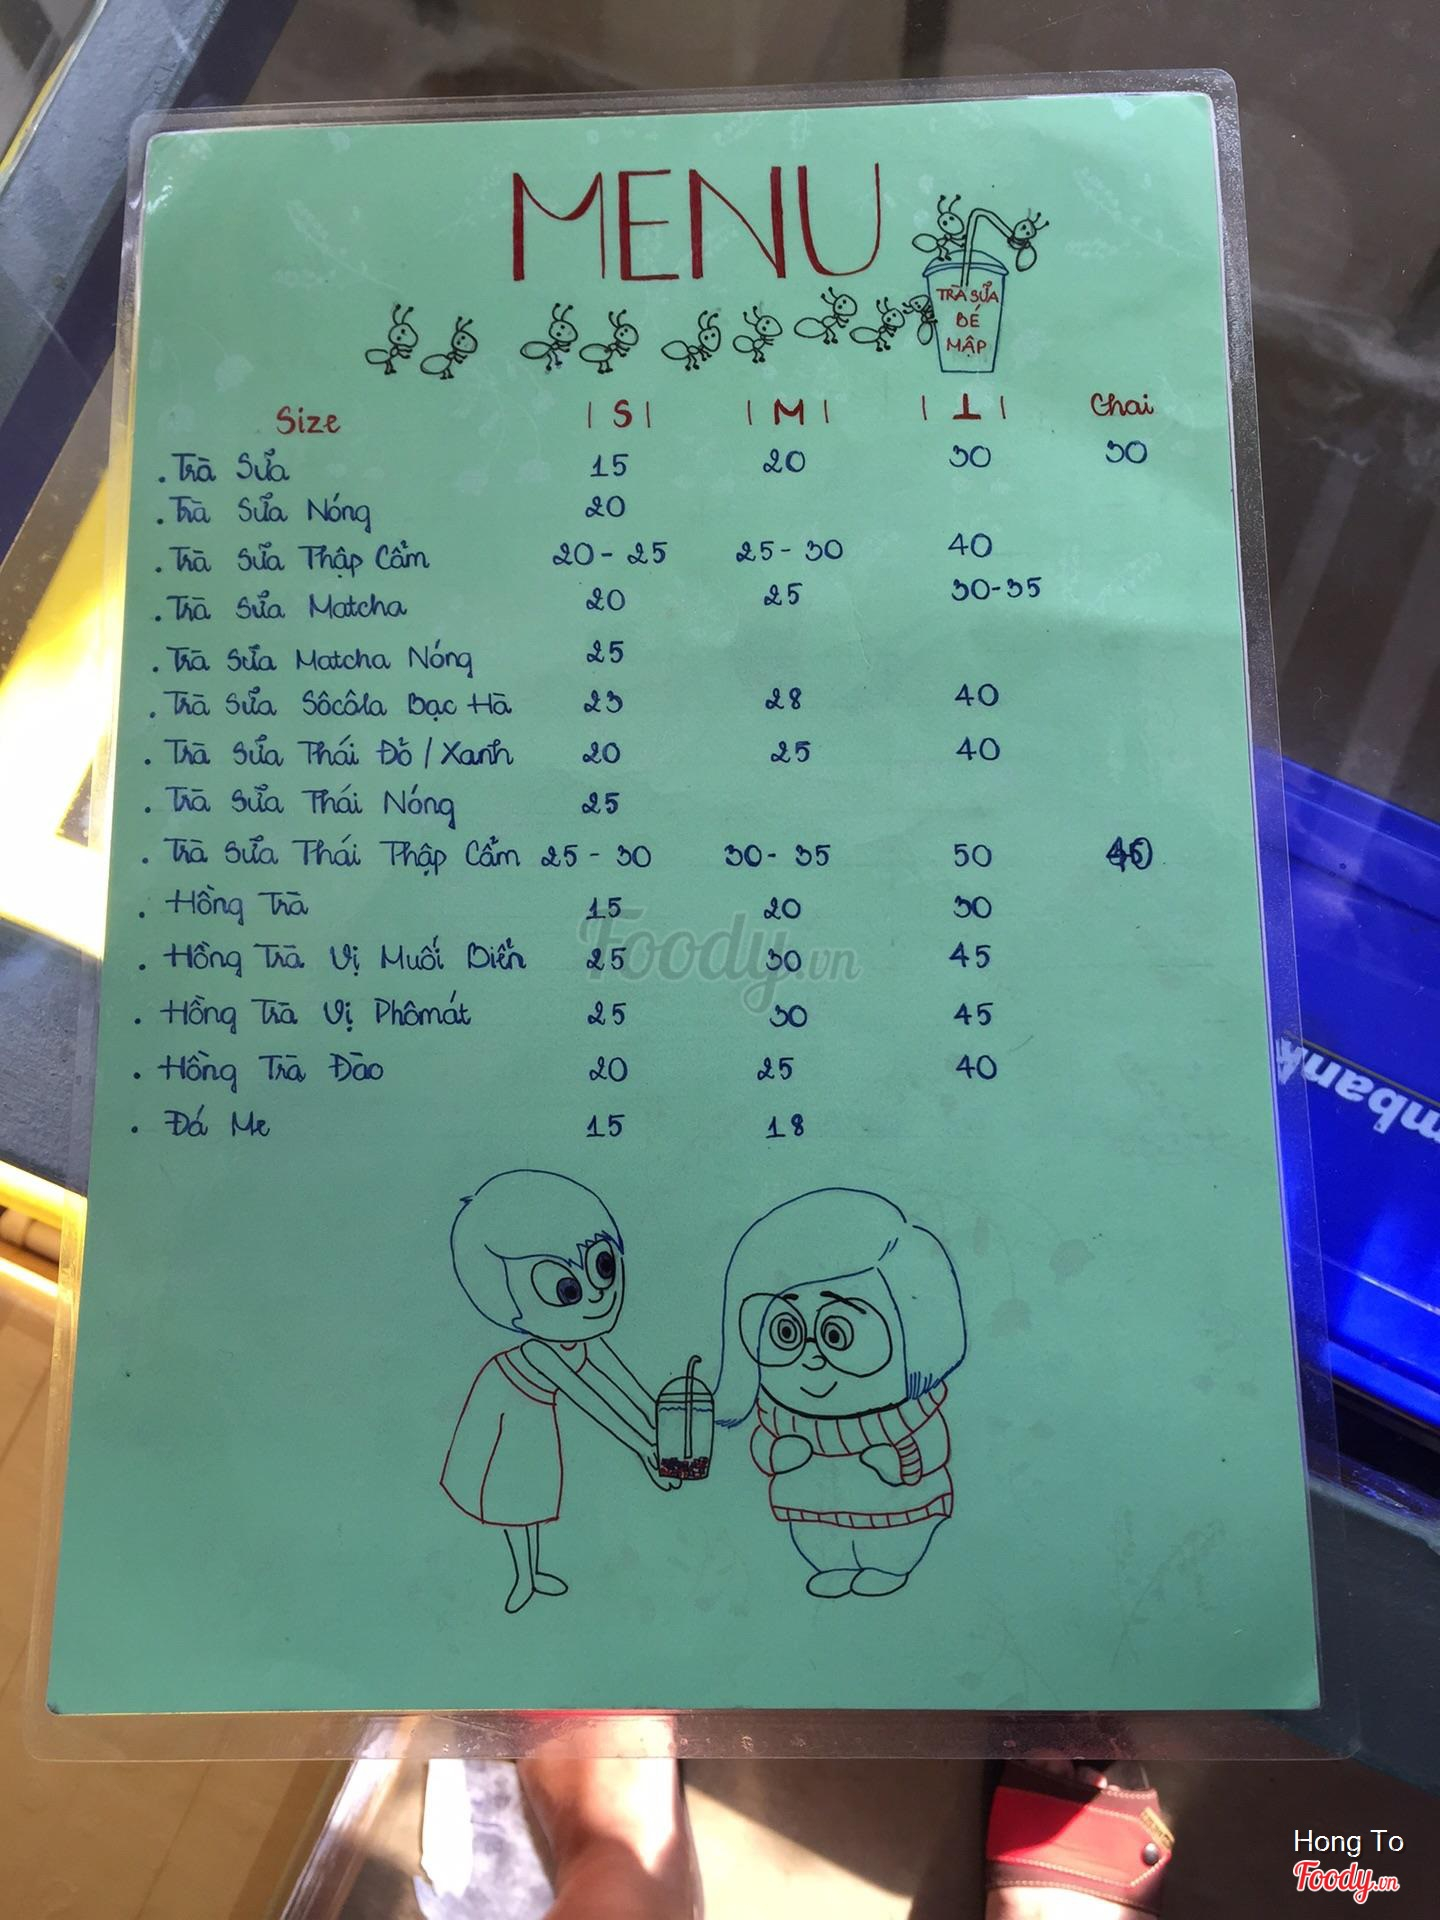 MENU
TRÀ SỮA
BÉ
MẬP
Size | S | | M | | L | Chai
. Trà Sữa 15 20 30 30
. Trà Sữa Nóng 20
. Trà Sữa Thập Cẩm 20 - 25 25 - 30 40
. Trà Sữa Matcha 20 25 30-35
. Trà Sữa Matcha Nóng 25
. Trà Sữa Sôcôla Bạc Hà 23 28 40
. Trà Sữa Thái Đỏ / Xanh 20 25 40
. Trà Sữa Thái Nóng 25
. Trà Sữa Thái Thập Cẩm 25 - 30 30 - 35 50
. Hồng Trà 15 20 30
. Hồng Trà Vị Muối Biển 25 30 45
. Hồng Trà Vị Phômát 25 30 45
. Hồng Trà Đào 20 25 40
. Đá Me 15 18
Foody.vn
mbank
Hong To
Foody.vn